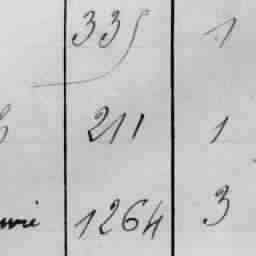 335 1
211 1
1264 3